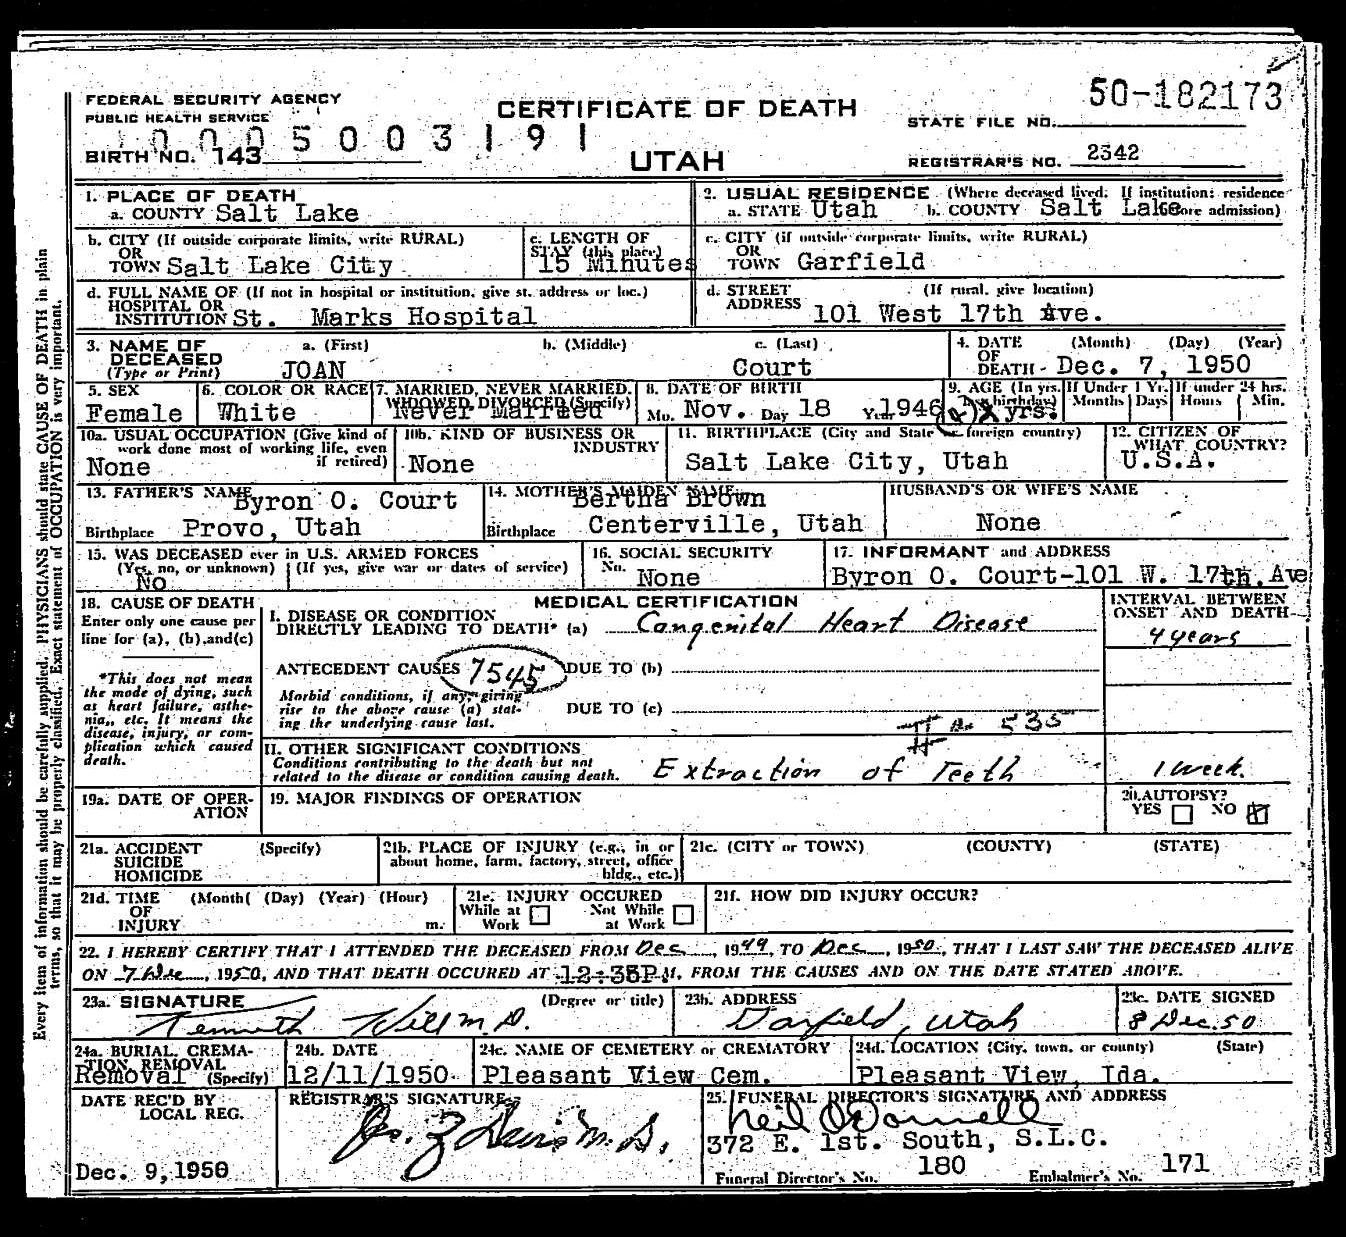 50-182173
FEDERAL SECURITY AGENCY
PUBLIC HEALTH SERVICE
CERTIFICATE OF DEATH
STATE FILE NO.
0005003191
BIRTH NO. 143
UTAH
REGISTRAR'S NO. 2342
1. PLACE OF DEATH
a. COUNTY Salt Lake
2. USUAL RESIDENCE (Where deceased lived. If institution: residence before admission)
a. STATE Utah b. COUNTY Salt Lake
b. CITY (If outside corporate limits, write RURAL)
OR
TOWN Salt Lake City
c. LENGTH OF
STAY (this place)
15 Minutes
c. CITY (if outside corporate limits, write RURAL)
OR
TOWN Garfield
d. FULL NAME OF (If not in hospital or institution, give st. address or loc.)
HOSPITAL OR
INSTITUTION St. Marks Hospital
d. STREET (If rural, give location)
ADDRESS 101 West 17th Ave.
3. NAME OF DECEASED
(Type or Print)
a. (First) b. (Middle) c. (Last)
JOAN Court
4. DATE OF DEATH (Month) (Day) (Year)
Dec. 7, 1950
5. SEX
Female
6. COLOR OR RACE
White
7. MARRIED, NEVER MARRIED, WIDOWED DIVORCED (Specify)
Never Married
8. DATE OF BIRTH
Mo. Nov. Day 18 Year 1946
9. AGE (In yrs. last birthday)
(4) yrs.
If Under 1 Yr. If under 24 hrs.
Months Days Hours Min.
10a. USUAL OCCUPATION (Give kind of work done most of working life, even if retired)
None
10b. KIND OF BUSINESS OR INDUSTRY
None
11. BIRTHPLACE (City and State or foreign country)
Salt Lake City, Utah
12. CITIZEN OF WHAT COUNTRY?
U.S.A.
13. FATHER'S NAME
Byron O. Court
Birthplace Provo, Utah
14. MOTHER'S MAIDEN NAME
Bertha Brown
Birthplace Centerville, Utah
HUSBAND'S OR WIFE'S NAME
None
15. WAS DECEASED ever in U.S. ARMED FORCES
(Yes, no, or unknown) (If yes, give war or dates of service)
No
16. SOCIAL SECURITY
No. None
17. INFORMANT and ADDRESS
Byron O. Court-101 W. 17th. Ave
18. CAUSE OF DEATH
Enter only one cause per line for (a), (b), and (c)
*This does not mean the mode of dying, such as heart failure, asthenia, etc. It means the disease, injury, or complication which caused death.
MEDICAL CERTIFICATION
INTERVAL BETWEEN ONSET AND DEATH
I. DISEASE OR CONDITION
DIRECTLY LEADING TO DEATH* (a) Congenital Heart Disease
4 years
ANTECEDENT CAUSES 7545 DUE TO (b)
Morbid conditions, if any, giving rise to the above cause (a) stating the underlying cause last.
DUE TO (c)
535
II. OTHER SIGNIFICANT CONDITIONS
Conditions contributing to the death but not related to the disease or condition causing death.
Extraction of Teeth
1 week.
19a. DATE OF OPERATION
19. MAJOR FINDINGS OF OPERATION
20. AUTOPSY?
YES NO
21a. ACCIDENT (Specify)
SUICIDE
HOMICIDE
21b. PLACE OF INJURY (e.g., in or about home, farm, factory, street, office bldg., etc.)
21c. (CITY or TOWN) (COUNTY) (STATE)
21d. TIME (Month( (Day) (Year) (Hour)
OF
INJURY m.
21e. INJURY OCCURED
While at Work Not While at Work
21f. HOW DID INJURY OCCUR?
22. I HEREBY CERTIFY THAT I ATTENDED THE DECEASED FROM Dec, 1949, TO Dec, 1950, THAT I LAST SAW THE DECEASED ALIVE
ON 7 Dec, 1950, AND THAT DEATH OCCURED AT 12:35P.M, FROM THE CAUSES AND ON THE DATE STATED ABOVE.
23a. SIGNATURE (Degree or title)
Kenneth Will M.D.
23b. ADDRESS
Garfield, Utah
23c. DATE SIGNED
8 Dec. 50
24a. BURIAL, CREMATION, REMOVAL (Specify)
Removal
24b. DATE
12/11/1950
24c. NAME OF CEMETERY or CREMATORY
Pleasant View Cem.
24d. LOCATION (City, town, or county) (State)
Pleasant View, Ida.
DATE REC'D BY LOCAL REG.
Dec. 9, 1950
REGISTRAR'S SIGNATURE
M.D.
25. FUNERAL DIRECTOR'S SIGNATURE AND ADDRESS
Neil O'Donnell
372 E. 1st. South, S.L.C.
Funeral Director's No. 180 Embalmer's No. 171
Every item of information should be carefully supplied. PHYSICIANS should state CAUSE OF DEATH in plain
terms, so that it may be properly classified. Exact statement of OCCUPATION is very important.